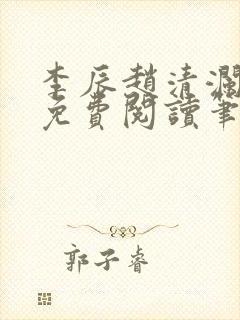 李辰趙清瀾
免費閱讀筆
郭子睿